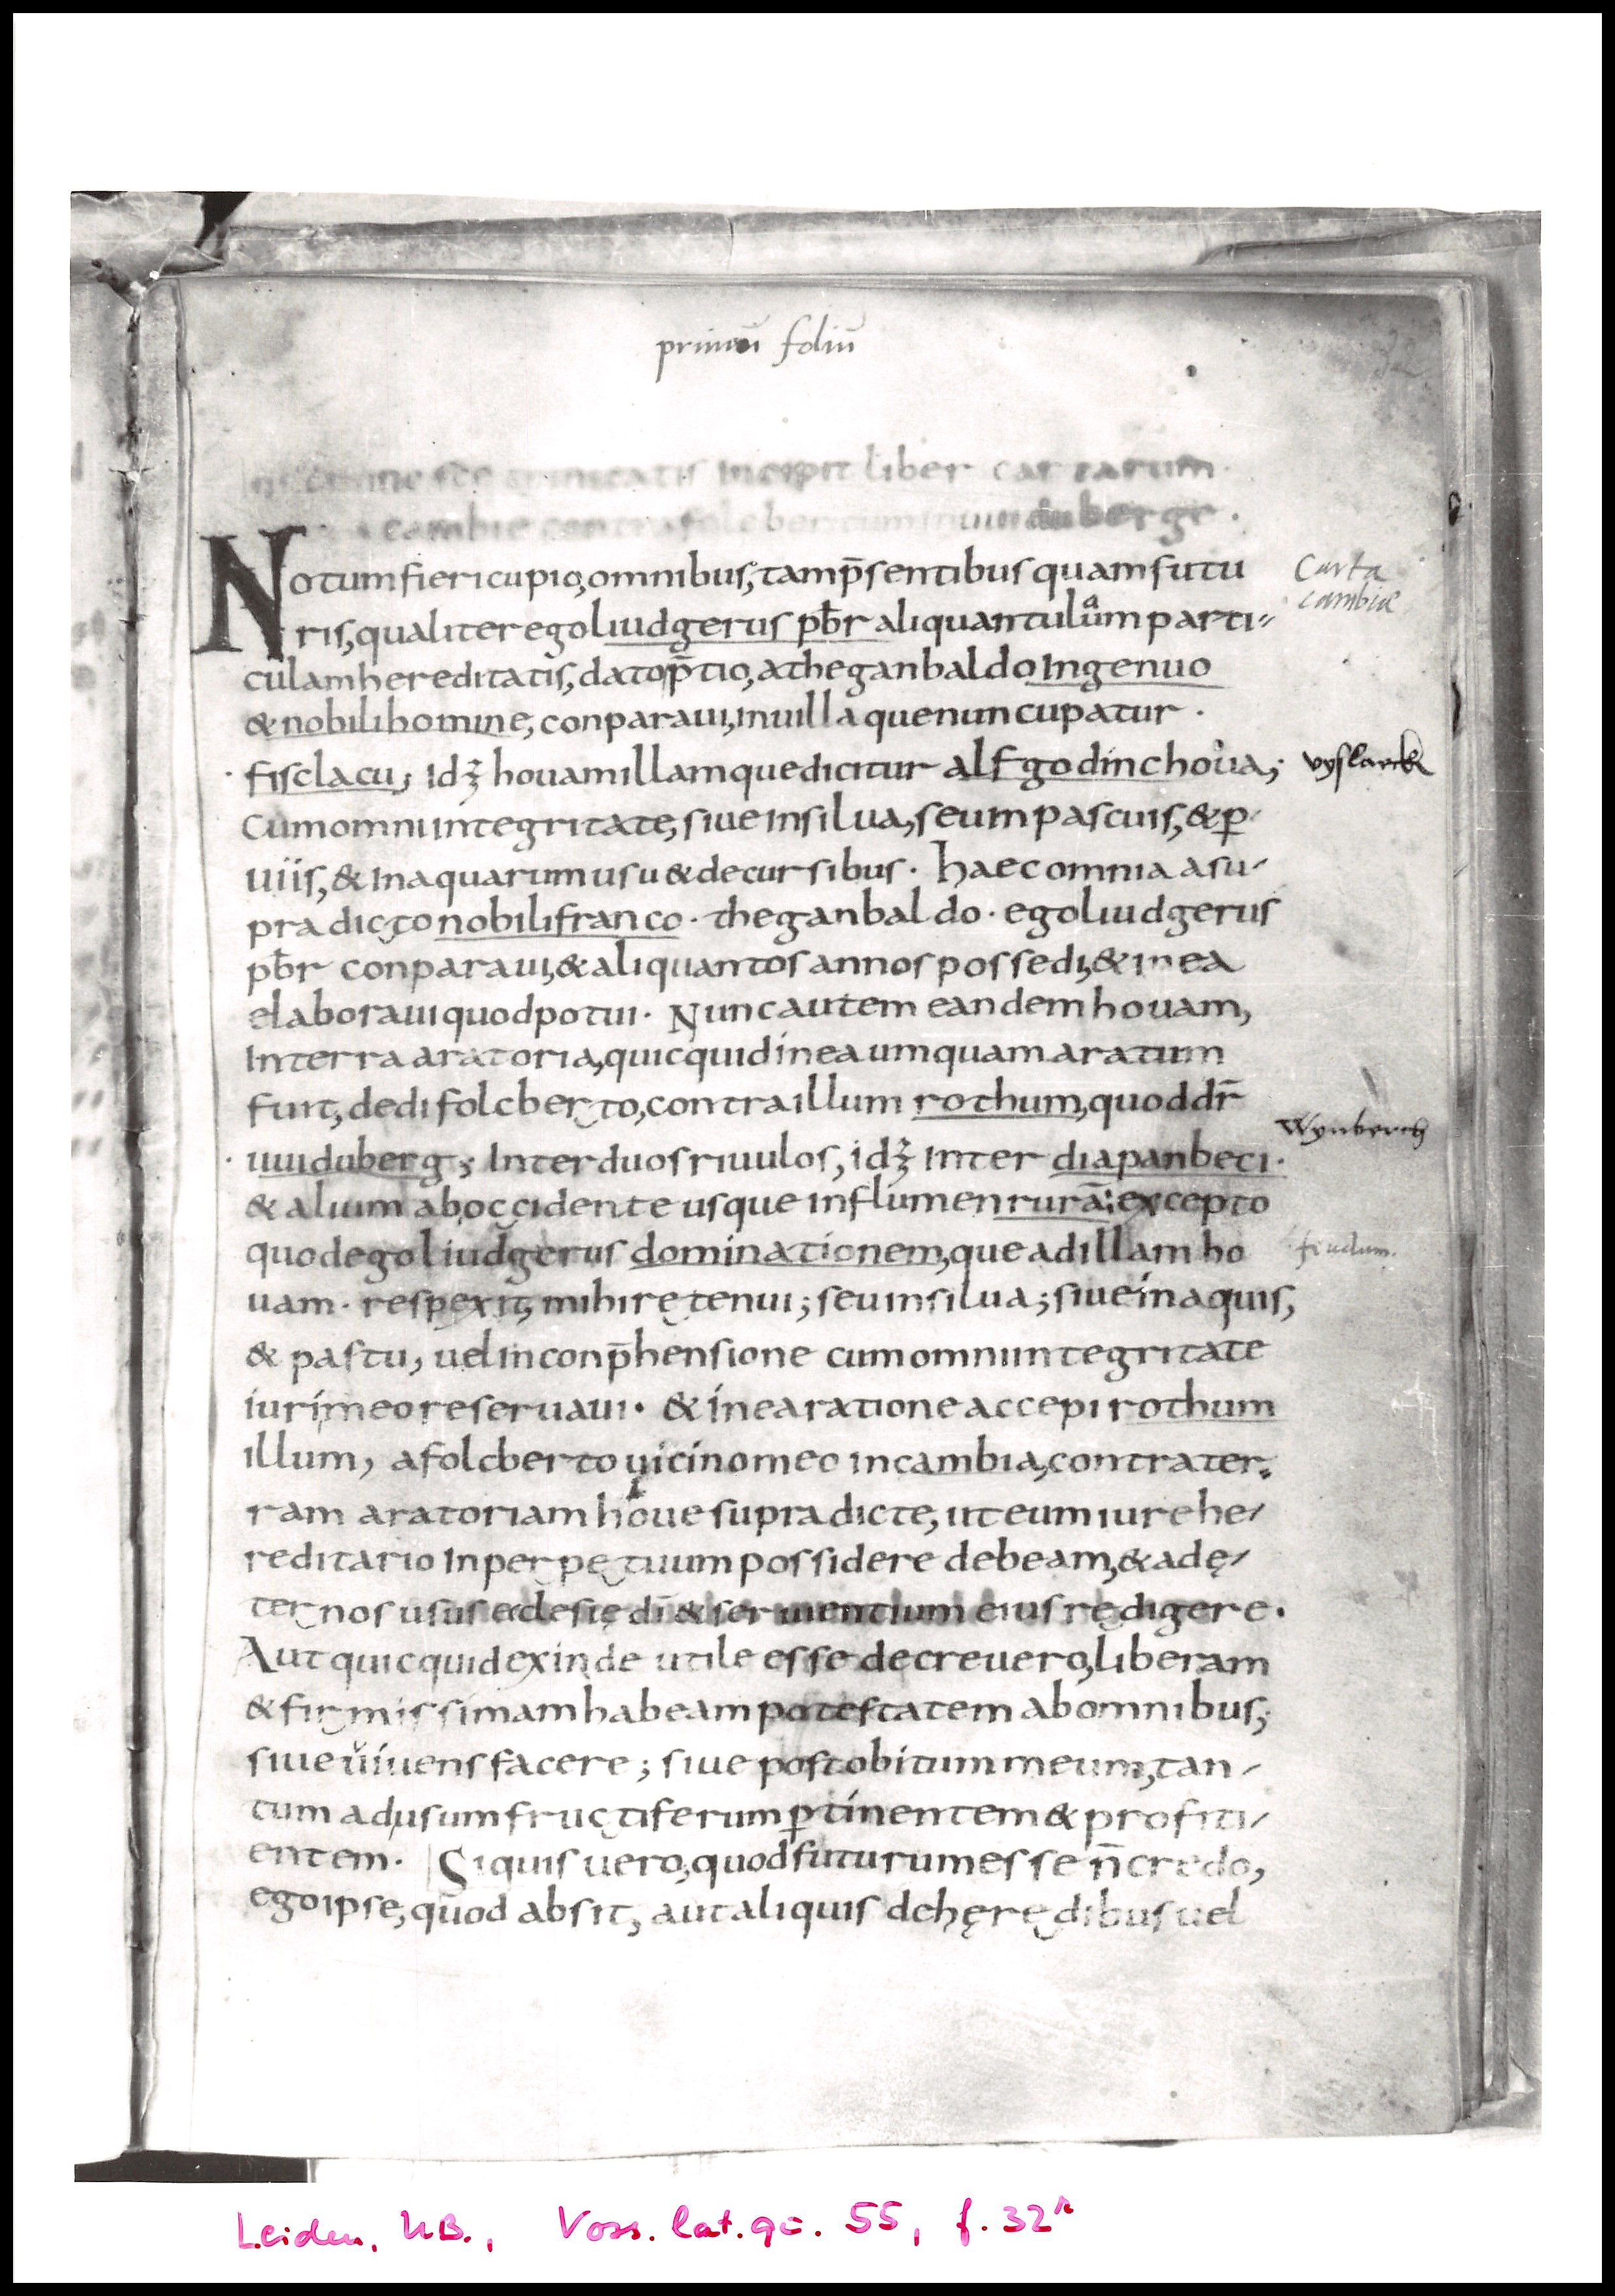 primum foliū
sce trinitatis incipit liber cartarum
cambie contra folcbertum in uuiduberge.
Notum fieri cupio, omnibus, tam p̄sentibus quam futu
ris, qualiter ego liudgerus pb̄r aliquantulam parti
culam hereditatis, dato p̄tio, a theganbaldo ingenuo
& nobili homine, conparaui, in uilla que nuncupatur ·
· fisclacu; idꝫ houam illam que dicitur alfgodinchoua;
Cum omni integritate, siue in silua, seu in pascuis, & ꝑ
uiis, & in aquarum usu & decursibus · haec omnia a su-
pradicto nobili franco · theganbaldo · ego liudgerus
pb̄r conparaui, & aliquantos annos possedi, & in ea
elaboraui quod potui · Nunc autem eandem houam,
In terra aratoria, quicquid in ea umquam aratum
fuit, dedi folcberto, contra illum rothum, quod dr̄
· uuiduberg; Inter duos riuulos, idꝫ inter diapanbeci ·
& alium ab occidente usque in flumen rurā: excepto
quod ego liudgerus dominationem, que ad illam ho
uam · respexit, mihi retenui; seu in silua; siue in aquis,
& pastu, uel in conp̄hensione cum omni integritate
iuri meo reseruaui · & in ea ratione accepi rothum
illum, a folcberto uicino meo in cambia, contra ter-
ram aratoriam houe supradicte, ut eum iure he-
reditario in perpętuum possidere debeam, & ad ę-
ternos usus ecclesię dī & seruientium eius rędigere ·
Aut quicquid exinde utile esse decreuero, liberam
& firmissimam habeam potestatem ab omnibus;
siue uiuens facere; siue post obitum meum, tan-
tum ad usum fructiferum ꝑtinentem & profiti-
entem · Si quis uero, quod futurum esse n̄ credo,
ego ipse, quod absit, aut aliquis de hęrędibus uel
Carta
cambiae
vyslarck
Wynberch
feudum.
Leiden, UB., Voss. lat. qo. 55, f. 32ʳ